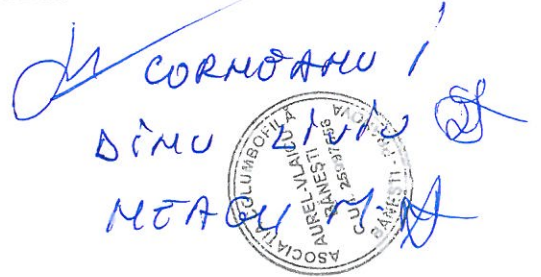 CORNOANU I
DINU LIVIU
NEAGU M.
ASOCIAȚIA COLUMBOFILĂ
AUREL-VLAICU
BĂNEȘTI
BĂNEȘTI - PRAHOVA